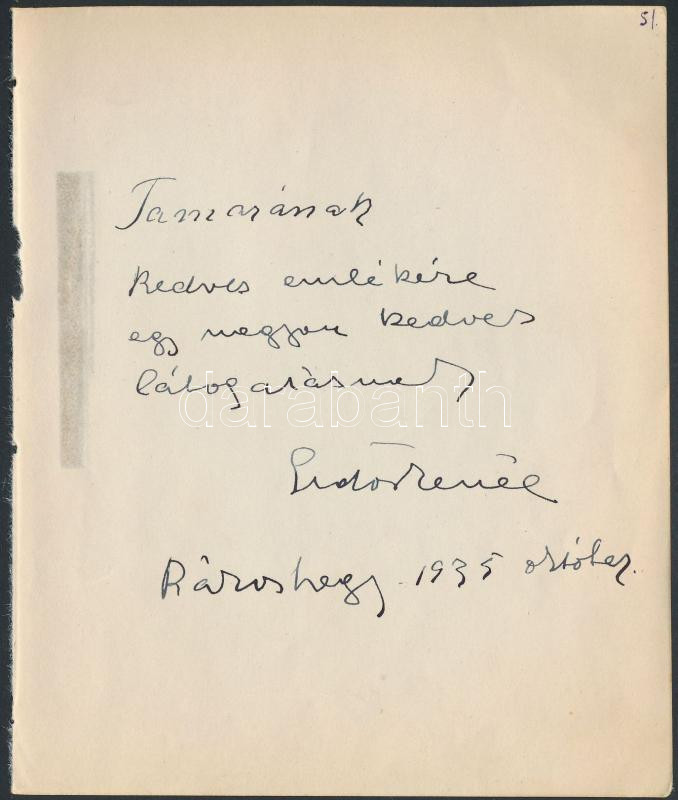 51.
Tamarának
kedves emlékére
egy nagyon kedves
látogatásnak
darabanth
Erdős Renée
Rároshegy 1935 október.